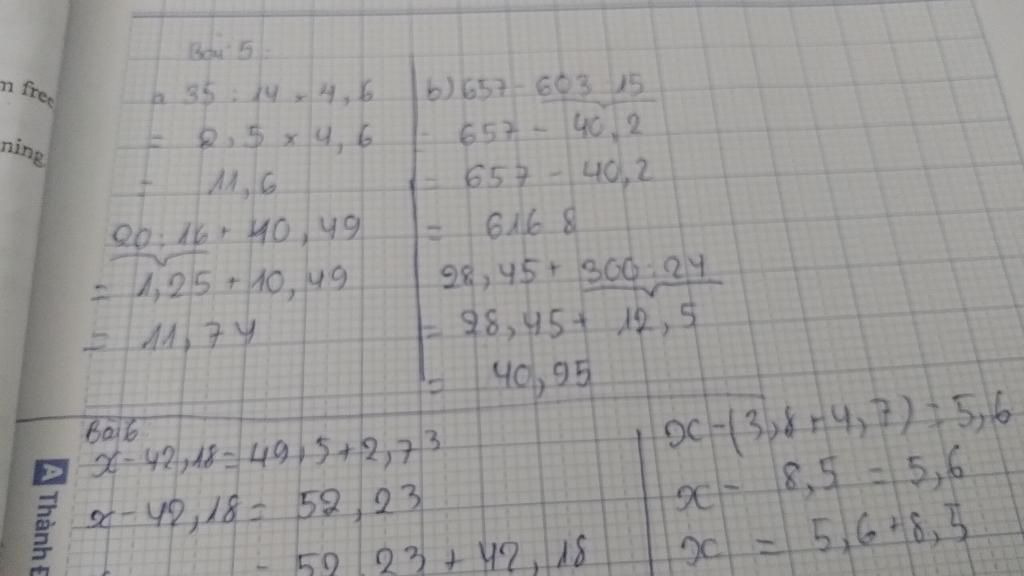 m free
ning
Bài 5:
35 : 14 × 4,6
= 2,5 × 4,6
= 11,6
20 : 16 + 10,49
= 1,25 + 10,49
= 11,74
b) 657 - 603 : 15
= 657 - 40,2
= 657 - 40,2
= 616 8
28,45 + 300 : 24
= 28,45 + 12,5
= 40,95
Bài 6
x - 42,18 = 49,5 + 2,73
x - 42,18 = 52,23
= 52,23 + 42,18
x - (3,8 + 4,7) = 5,6
x - 8,5 = 5,6
x = 5,6 + 8,5
A Thành